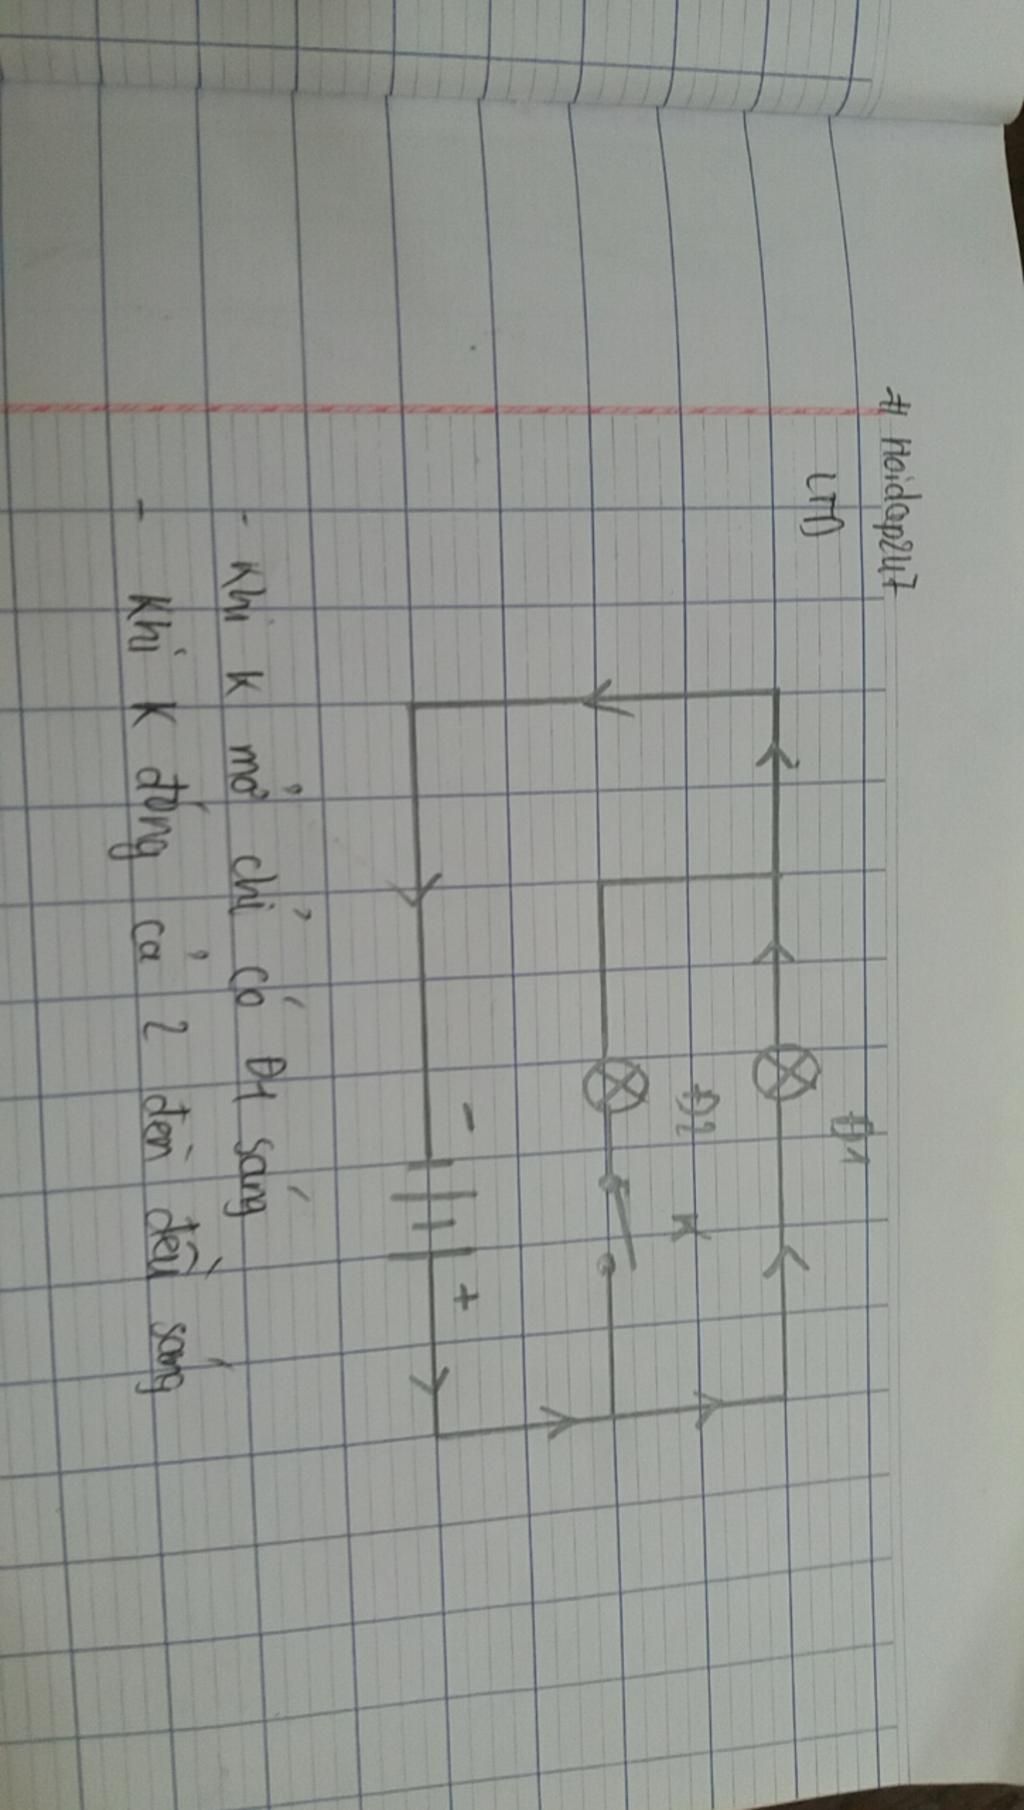 # Hoidap247
LTD
Đ1
Đ2
K
- +
- Khi K mở chỉ có Đ1 sáng
- Khi K đóng cả 2 đèn đều sáng